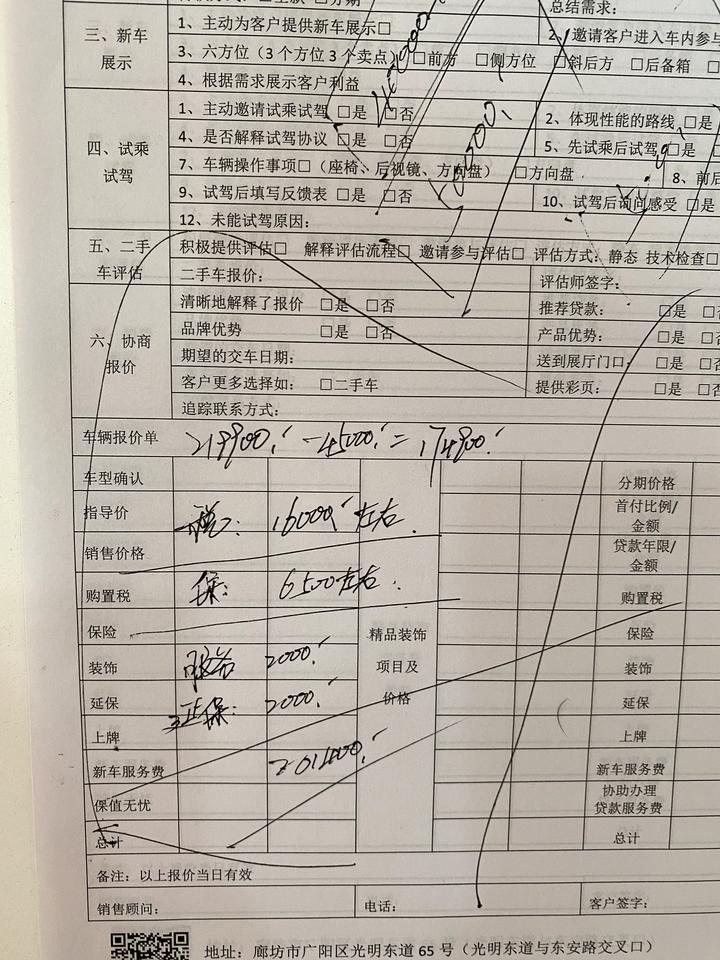 总结需求：
三、新车展示
1、主动为客户提供新车展示□
2、邀请客户进入车内参与
3、六方位（3个方位3个卖点） □前方 □侧方位 □斜后方 □后备箱
4、根据需求展示客户利益
四、试乘试驾
1、主动邀请试乘试驾 □是 □否
2、体现性能的路线 □是
4、是否解释试驾协议 □是 □否
5、先试乘后试驾 □是
7、车辆操作事项□（座椅、后视镜、方向盘） □方向盘
8、前后
9、试驾后填写反馈表 □是 □否
10、试驾后询问感受 □是
12、未能试驾原因：
五、二手车评估
积极提供评估□ 解释评估流程□ 邀请参与评估□ 评估方式：静态 技术检查□
二手车报价： 评估师签字：
六、协商报价
清晰地解释了报价 □是 □否 推荐贷款： □是 □否
品牌优势 □是 □否 产品优势： □是 □否
期望的交车日期： 送到展厅门口： □是 □否
客户更多选择如： □二手车 提供彩页： □是 □否
追踪联系方式：
车辆报价单 219900. -45000. = 174900.
车型确认 分期价格
指导价 税: 16000. 左右. 首付比例/金额
销售价格 贷款年限/金额
购置税 保: 6500左右. 购置税
保险 精品装饰项目及价格 保险
装饰 服务 2000. 装饰
延保 正保: 2000. 延保
上牌 上牌
新车服务费 201400. 新车服务费
保值无忧 协助办理贷款服务费
总计 总计
备注：以上报价当日有效
销售顾问： 电话： 客户签字：
地址：廊坊市广阳区光明东道65号（光明东道与东安路交叉口）